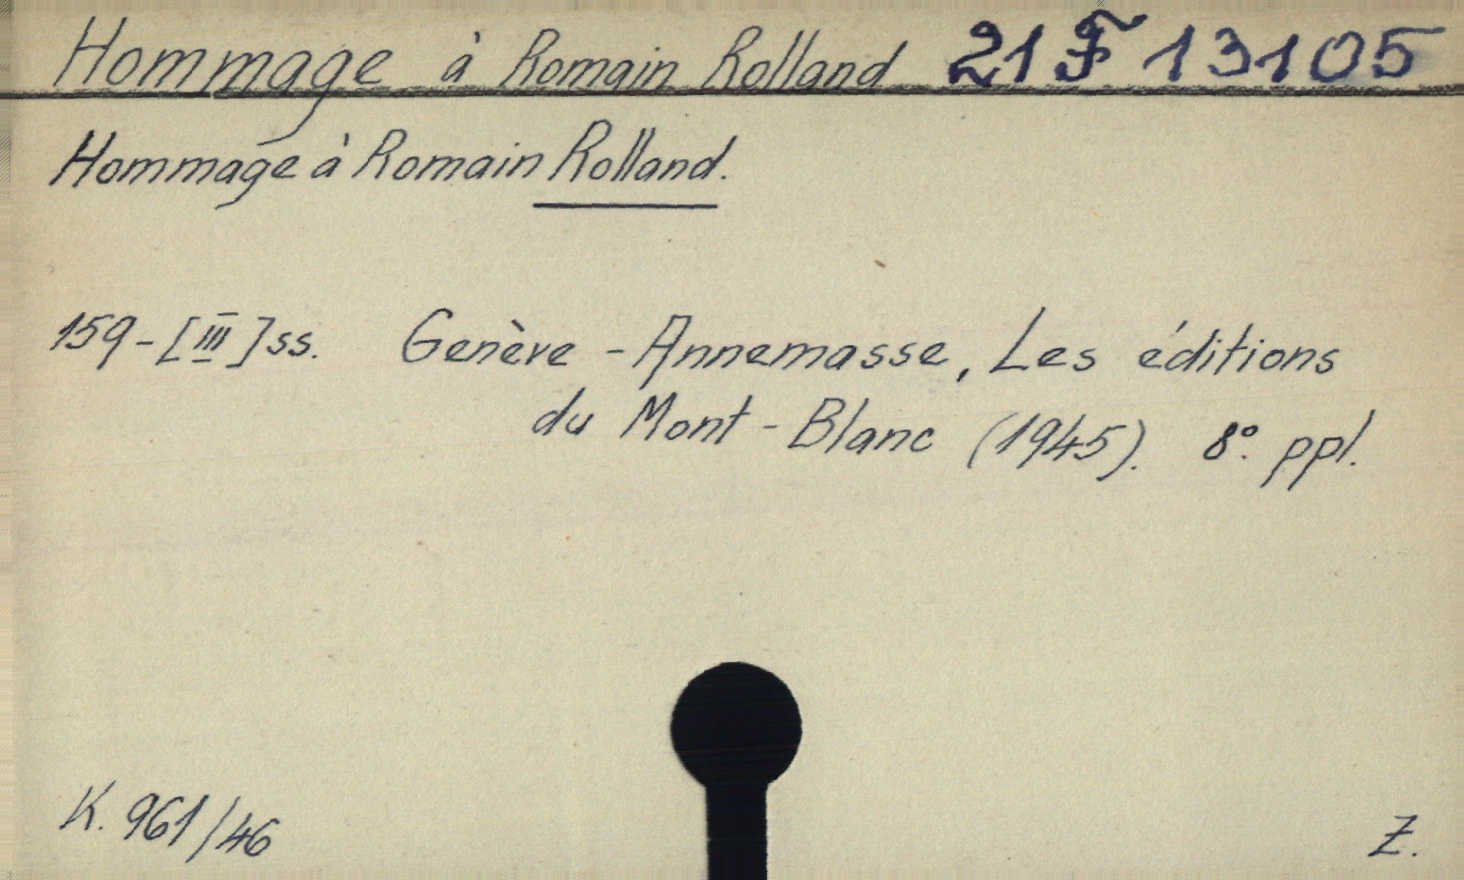 Hommage à Romain Rolland 21 F 13105
Hommage à Romain Rolland.
159-[III]ss. Genève - Annemasse, Les éditions
du Mont-Blanc (1945). 8º. ppl.
K. 961/46
Z.